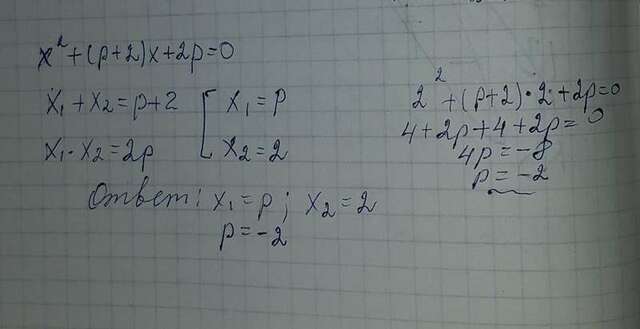 x² + (p+2)x + 2p = 0
x₁ + x₂ = p+2 [ x₁ = p
x₁ · x₂ = 2p x₂ = 2
Ответ: x₁ = p ; x₂ = 2
p = -2
2² + (p+2) · 2 + 2p = 0
4 + 2p + 4 + 2p = 0
4p = -8
p = -2